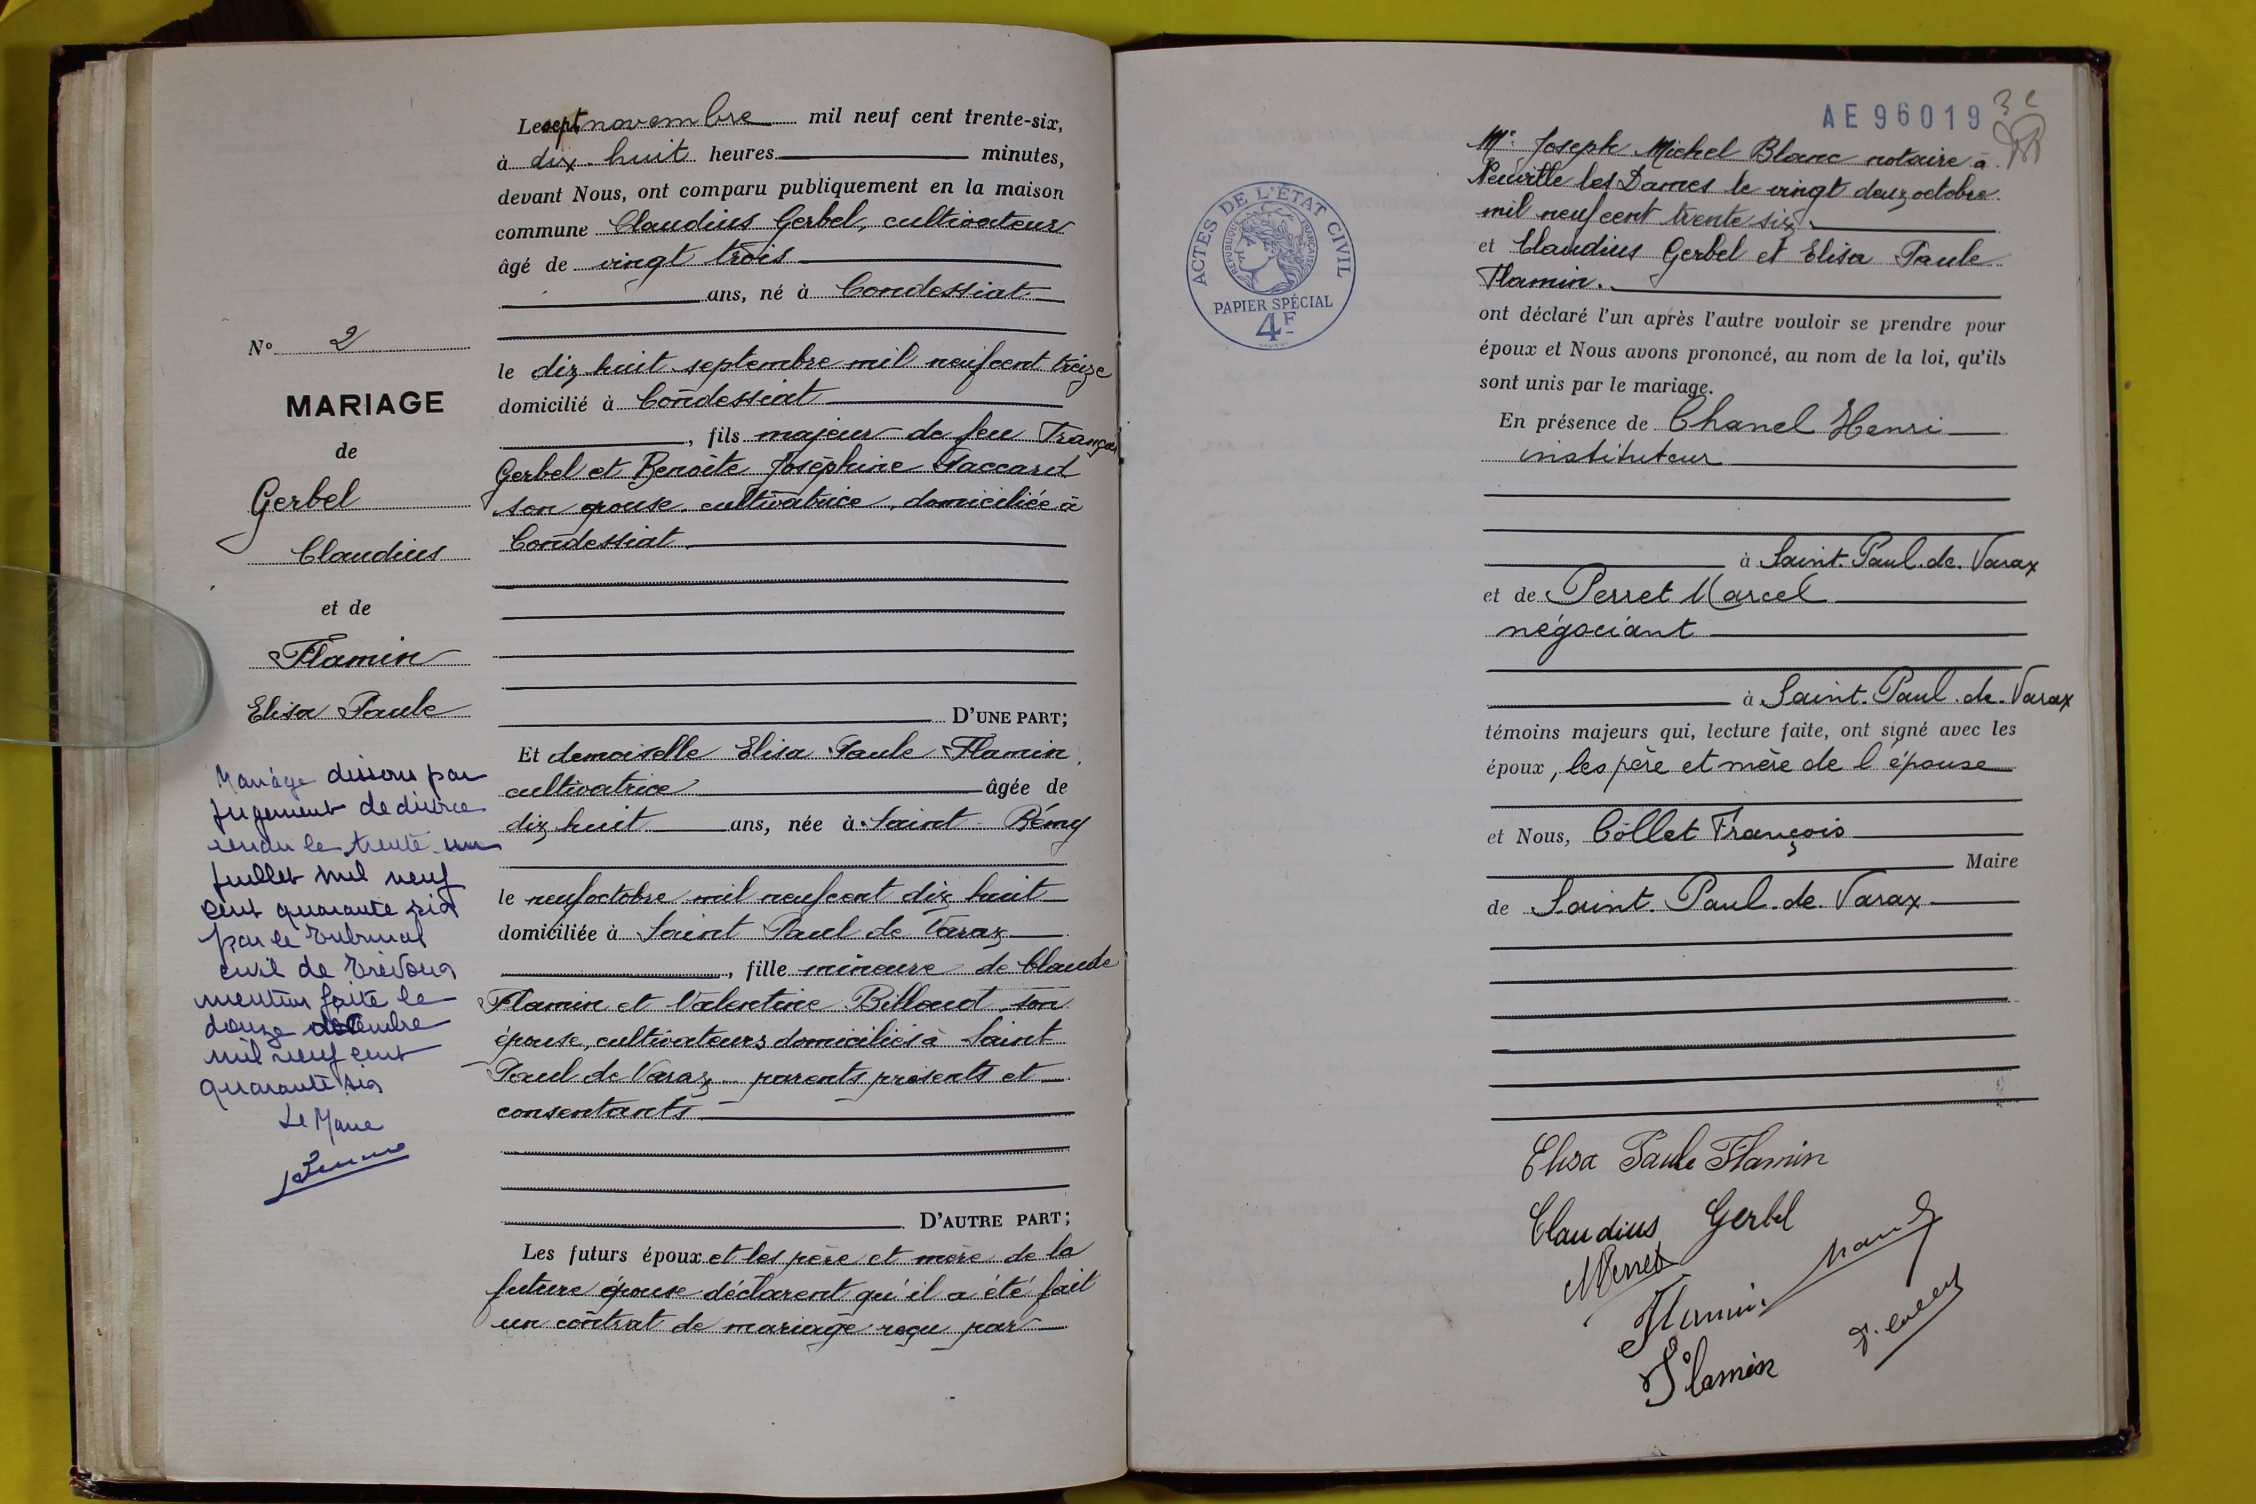 Le sept novembre mil neuf cent trente-six,
à dix-huit heures minutes,
devant Nous, ont comparu publiquement en la maison
commune Claudius Gerbel, cultivateur
âgé de vingt trois
ans, né à Condessiat
le dix huit septembre mil neuf cent treize
domicilié à Condessiat
, fils majeur de feu François
Gerbel et Benoîte Joséphine Vaccard
son épouse, cultivatrice, domiciliée à
Condessiat.
D'UNE PART;
Et demoiselle Elisa Paule Flamin,
cultivatrice âgée de
dix huit ans, née à Saint Rémy
le neuf octobre mil neuf cent dix huit
domiciliée à Saint Paul de Varax
, fille mineure de Claude
Flamin et Valentine Billoud son
épouse, cultivateurs domiciliés à Saint
Paul de Varax, parents présents et
consentants
D'AUTRE PART;
Les futurs époux et les père et mère de la
future épouse déclarent qu'il a été fait
un contrat de mariage reçu par
N° 2
MARIAGE
de
Gerbel
Claudius
et de
Flamin
Elisa Paule
Mariage dissous par
jugement de divorce
rendu le trente un
juillet mil neuf
cent quarante six
par le Tribunal
civil de Trévoux
mention faite le
douze décembre
mil neuf cent
quarante six
Le Maire
AE96019
ACTES DE L'ÉTAT CIVIL
RÉPUBLIQUE FRANÇAISE
PAPIER SPÉCIAL
4F
Me Joseph Michel Blanc notaire à
Neuville les Dames le vingt deux octobre
mil neuf cent trente six.
et Claudius Gerbel et Elisa Paule
Flamin.
ont déclaré l'un après l'autre vouloir se prendre pour
époux et Nous avons prononcé, au nom de la loi, qu'ils
sont unis par le mariage.
En présence de Chanel Henri
instituteur
à Saint-Paul-de-Varax
et de Perret Marcel
négociant
à Saint-Paul-de-Varax
témoins majeurs qui, lecture faite, ont signé avec les
époux, les père et mère de l'épouse
et Nous, Collet François
Maire
de Saint-Paul-de-Varax
Elisa Paule Flamin
Claudius Gerbel
MPerret
Flamin
Flamin
F. Collet